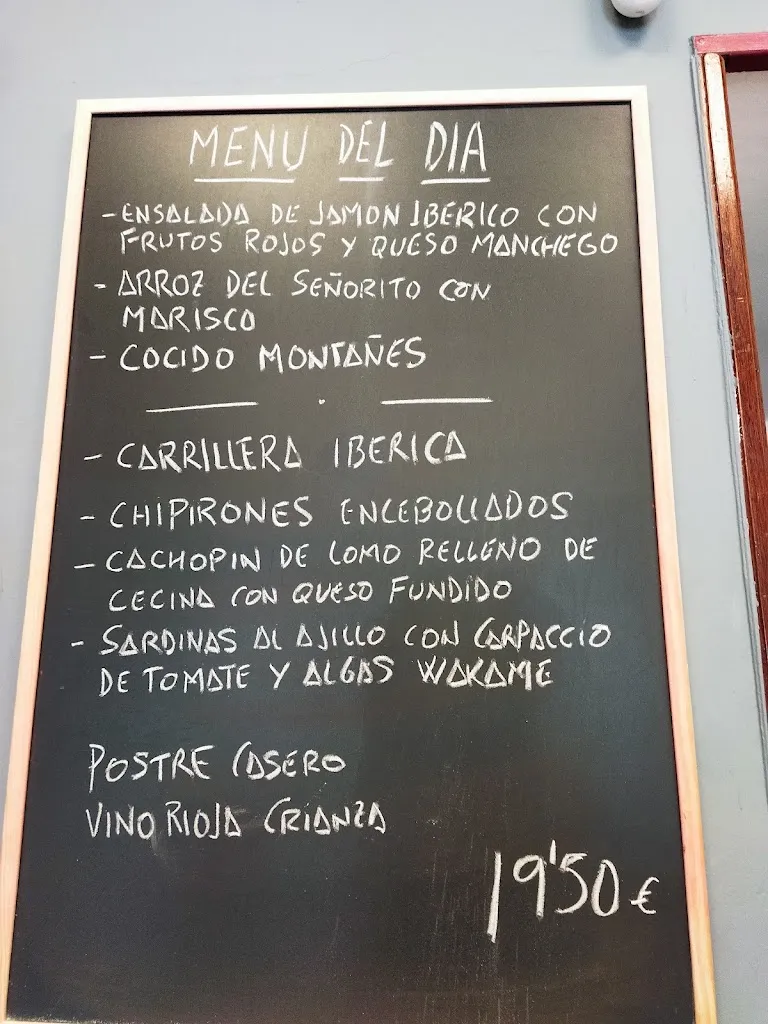 MENU DEL DIA
- ENSALADA DE JAMON IBERICO CON
FRUTOS ROJOS Y QUESO MANCHEGO
- ARROZ DEL SEÑORITO CON
MARISCO
- COCIDO MONTAÑES
- CARRILLERA IBERICA
- CHIPIRONES ENCEBOLLADOS
- CACHOPIN DE LOMO RELLENO DE
CECINA CON QUESO FUNDIDO
- SARDINAS AL AJILLO CON CARPACCIO
DE TOMATE Y ALGAS WAKAME
POSTRE CASERO
VINO RIOJA CRIANZA
19'50 €